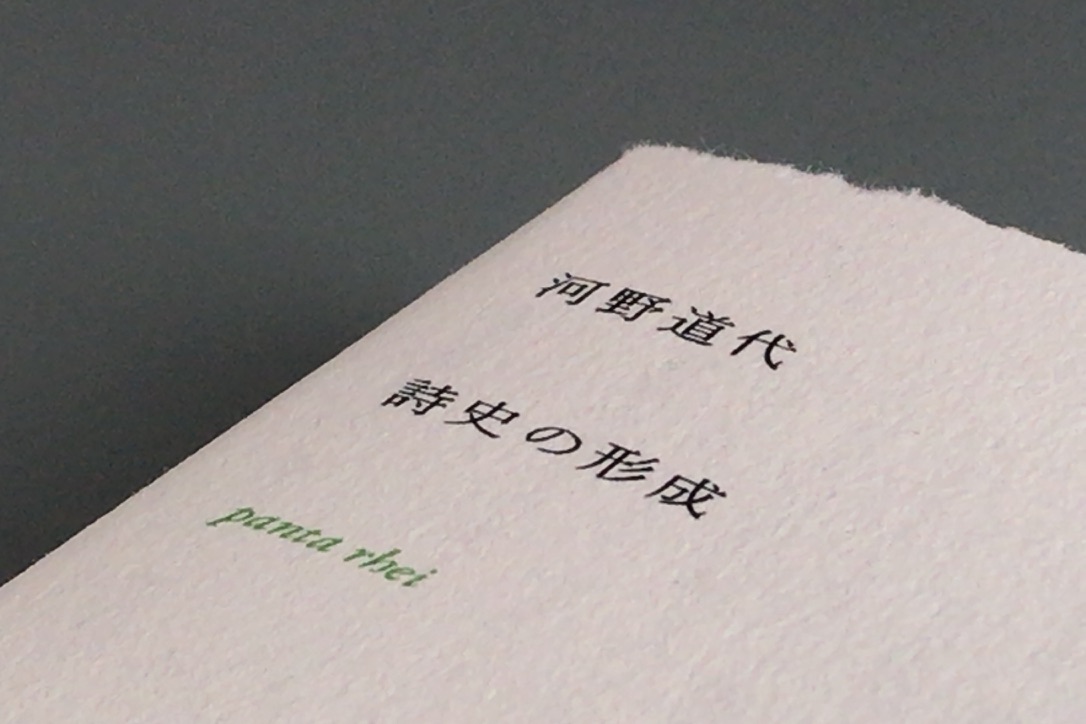 河野道代
詩史の形成
panta rhei